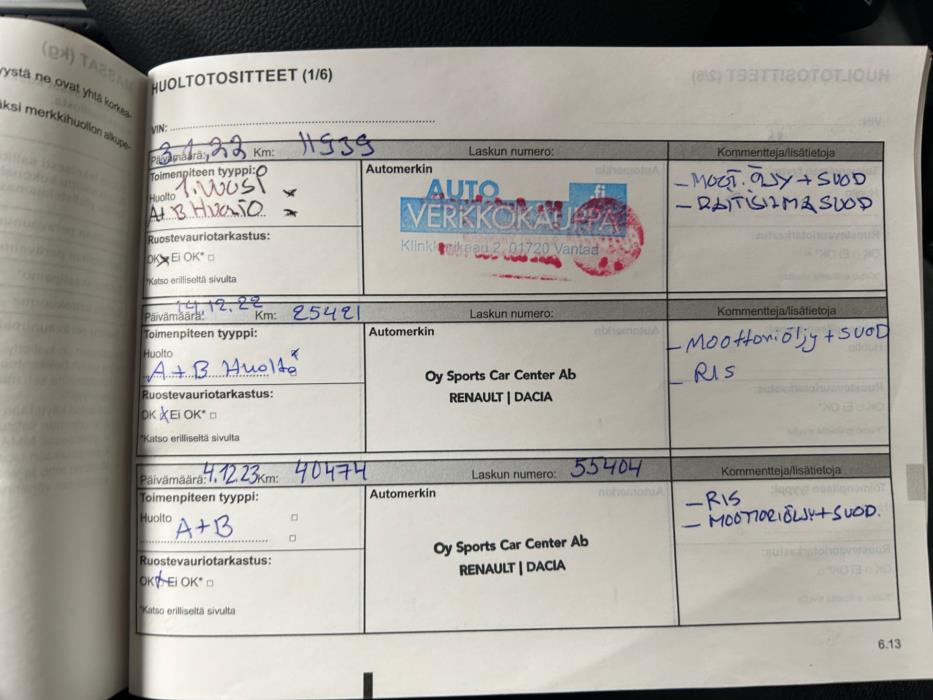 MASSAT (kg)
ystä ne ovat yhtä korkea-
äksi merkkihuollon alkupe-
HUOLTOTOSITTEET (1/6)
VIN:
Päivämäärä: 3.1.22 Km: 11939 Laskun numero: Kommentteja/lisätietoja
Toimenpiteen tyyppi:
Huolto 1. VUOSI
A+B HUOLTO
Ruostevauriotarkastus:
OK Ei OK*
*Katso erilliseltä sivulta
Automerkin
AUTO .fi
VERKKOKAUPPA
Klinkkerikaari 2, 01720 Vantaa
- MOOT. ÖLJY + SUOD
- RAITISILMA SUOD
Päivämäärä: 14.12.22 Km: 25421 Laskun numero: Kommentteja/lisätietoja
Toimenpiteen tyyppi:
Huolto
A+B Huolto
Ruostevauriotarkastus:
OK Ei OK*
*Katso erilliseltä sivulta
Automerkin
Oy Sports Car Center Ab
RENAULT | DACIA
- Moottoriöljy + SUOD
- RIS
Päivämäärä: 4.12.23 Km: 40474 Laskun numero: 55404 Kommentteja/lisätietoja
Toimenpiteen tyyppi:
Huolto
A+B
Ruostevauriotarkastus:
OK Ei OK*
*Katso erilliseltä sivulta
Automerkin
Oy Sports Car Center Ab
RENAULT | DACIA
- RIS
- MOOTTORIÖLJY + SUOD.
6.13